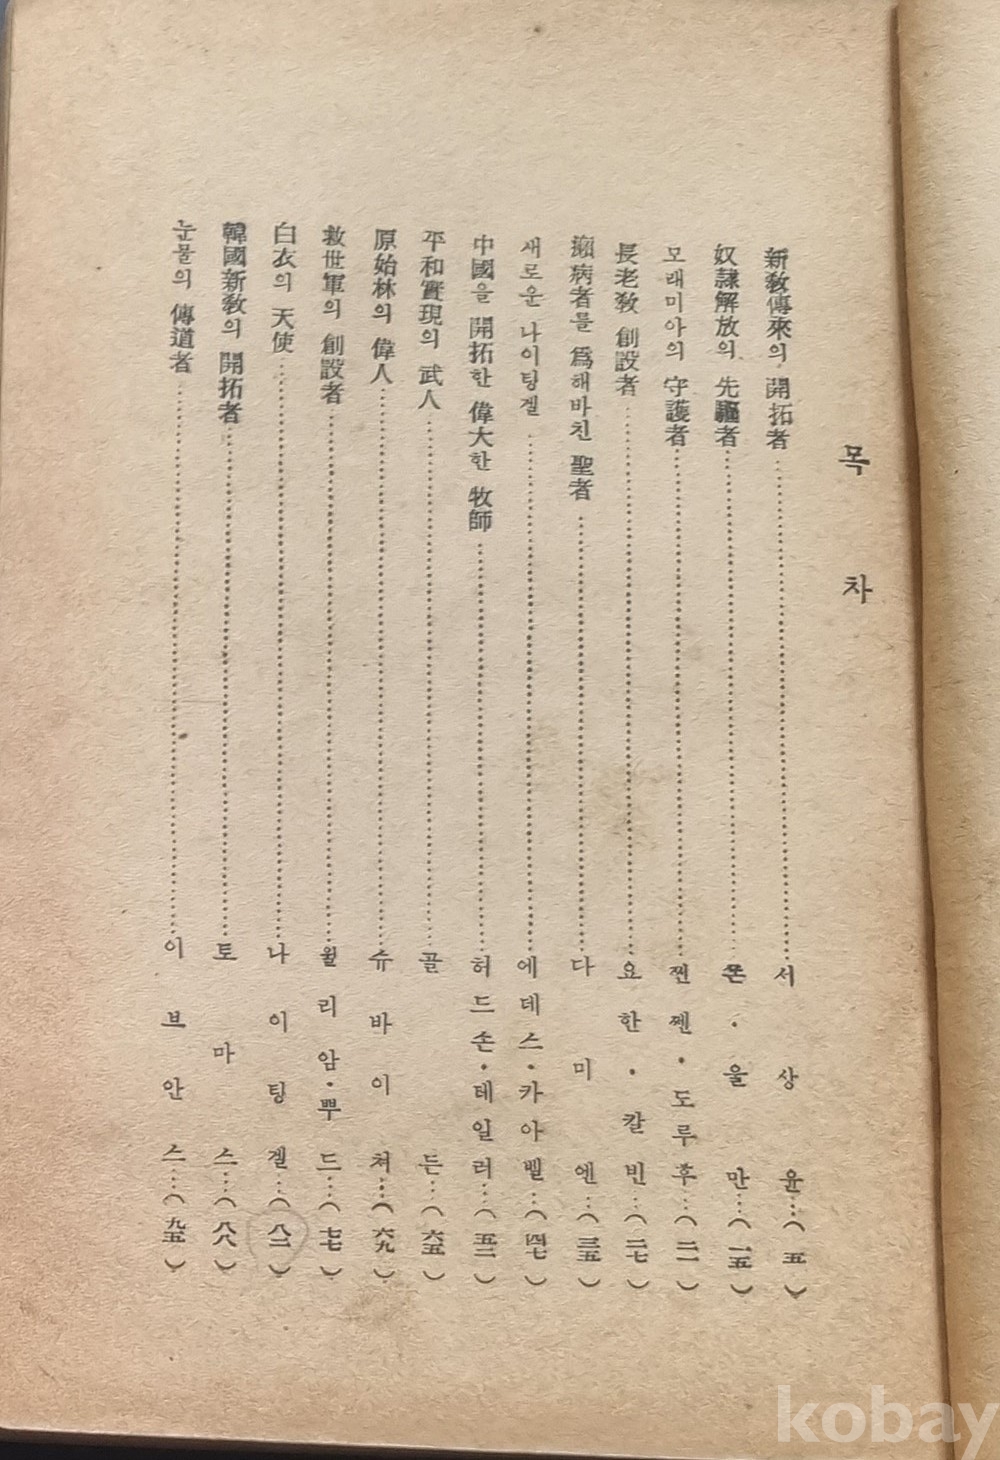 목 차
新敎傳來의 開拓者……서 상 윤…(五)
奴隷解放의 先驅者……쫀·울 만…(一五)
모래미아의 守護者……찐쩬·도루후…(二一)
長老敎 創設者……요한·칼빈…(二七)
癩病者를 爲해바친 聖者……다 미 엔…(三五)
새로운 나이팅겔……에데스·카아벨…(四七)
中國을 開拓한 偉大한 牧師……허드손·테일러…(五二)
平和實現의 武人……골 든…(六五)
原始林의 偉人……슈바이쳐…(六九)
救世軍의 創設者……윌리암·뿌드…(七七)
白衣의 天使……나이팅겔…(八二)
韓國新敎의 開拓者……토 마 스…(八八)
눈물의 傳道者……이브안스…(九五)
kobay